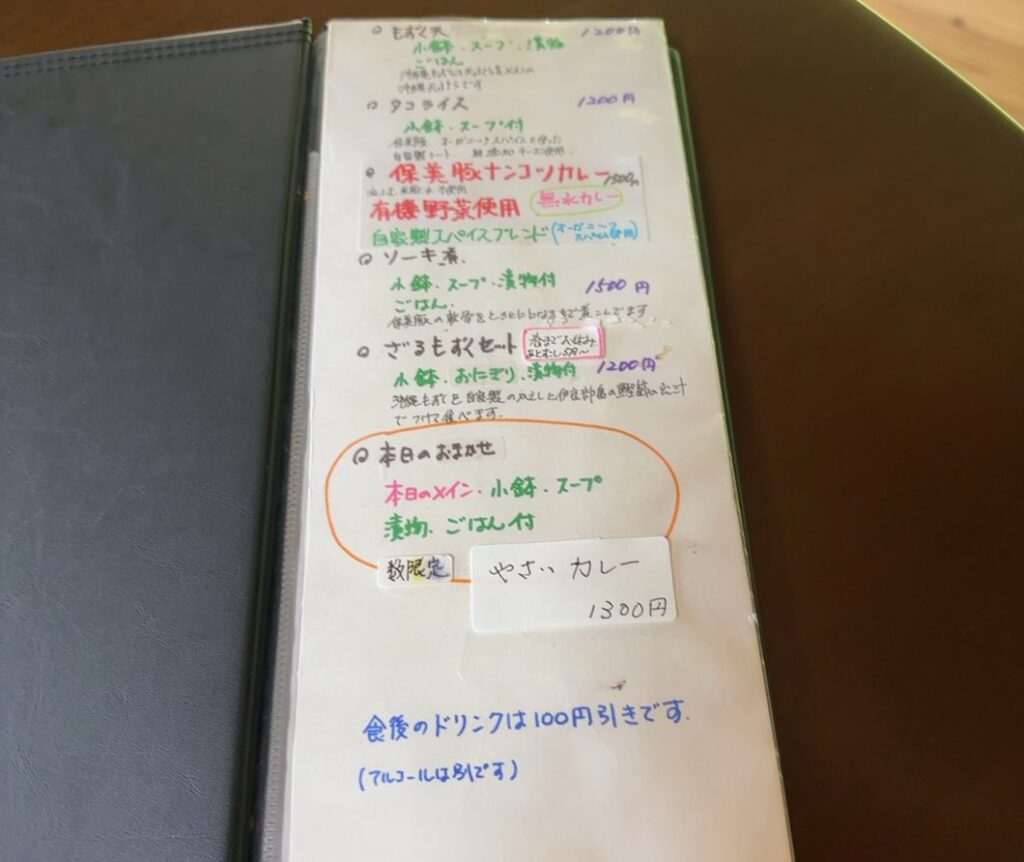 もずく天 1200円
小鉢・スープ・漬物
ごはん
沖縄天ぷらです
タコライス 1200円
小鉢、スープ付
保美豚、オーガニックスパイスを使った
自家製ミート、無添加チーズ使用
保美豚ナンコツカレー 1500円
不使用
有機野菜使用 無水カレー
自家製スパイスブレンド(オーガニックスパイス使用)
ソーキ煮
小鉢、スープ、漬物付 1500円
ごはん
保美豚の軟骨をとろとろになるまで煮こんでます
ざるもずくセット 春までお休み
小鉢、おにぎり、漬物付 1200円
沖縄もずくを自家製のかえしと伊良部島の鰹節のだし汁
でつけて食べます。
本日のおまかせ
本日のメイン、小鉢、スープ
漬物、ごはん付
数限定 やさいカレー
1300円
食後のドリンクは100円引きです.
(アルコールは別です)